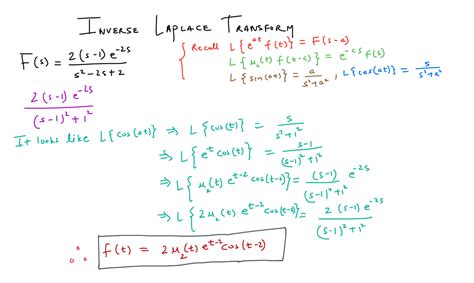 INVERSE LAPLACE TRANSFORM
F(s) = 2(s-1) e^{-2s} / s²-2s+2
Recall L{e^{at} f(t)} = F(s-a)
L{μ_c(t) f(t-c)} = e^{-cs} f(s)
L{sin(at)} = a / s²+a² , L{cos(at)} = s / s²+a²
2(s-1) e^{-2s} / (s-1)² + 1²
It looks like L{cos(at)} ⇒ L{cos(t)} = s / s²+1²
⇒ L{e^t cos(t)} = s-1 / (s-1)²+1²
⇒ L{μ_2(t) e^{t-2} cos(t-2)} = (s-1) e^{-2s} / (s-1)²+1²
⇒ L{2μ_2(t) e^{t-2} cos(t-2)} = 2(s-1) e^{-2s} / (s-1)²+1²
∴ f(t) = 2μ_2(t) e^{t-2} cos(t-2)